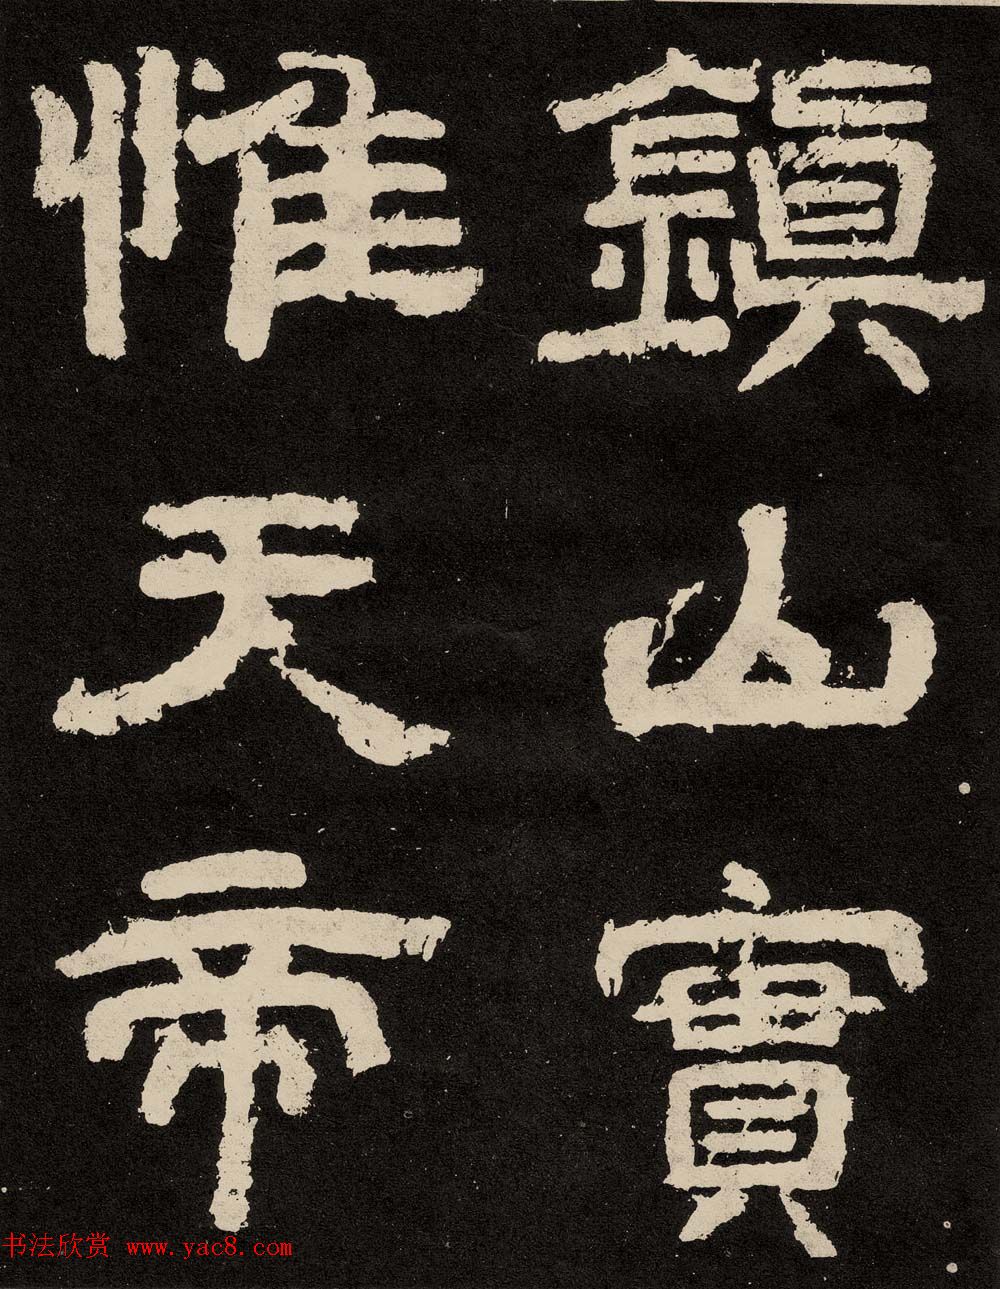 鎮山實
惟天帝
书法欣赏 www.yac8.com